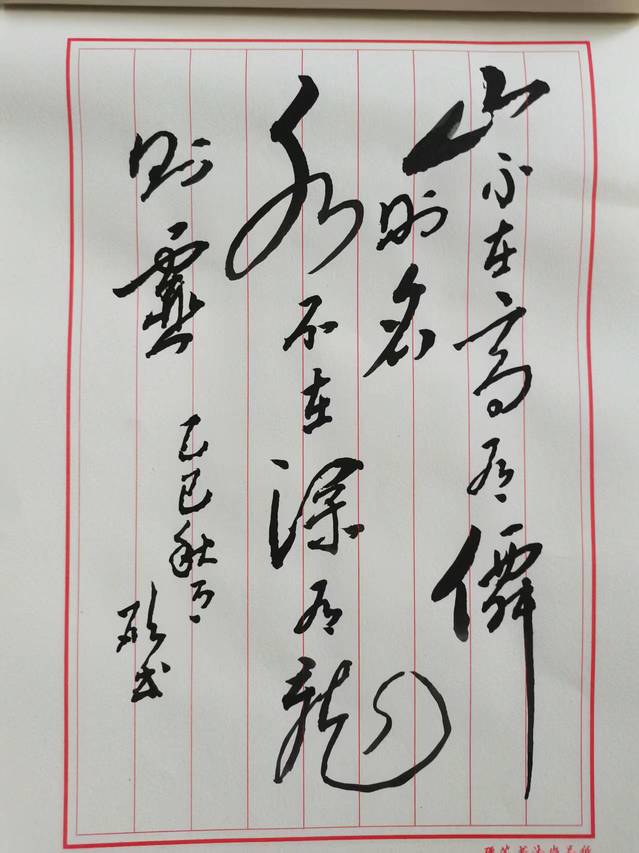 山不在高有僊
则名
水不在深有龙
则靈
乙巳秋月